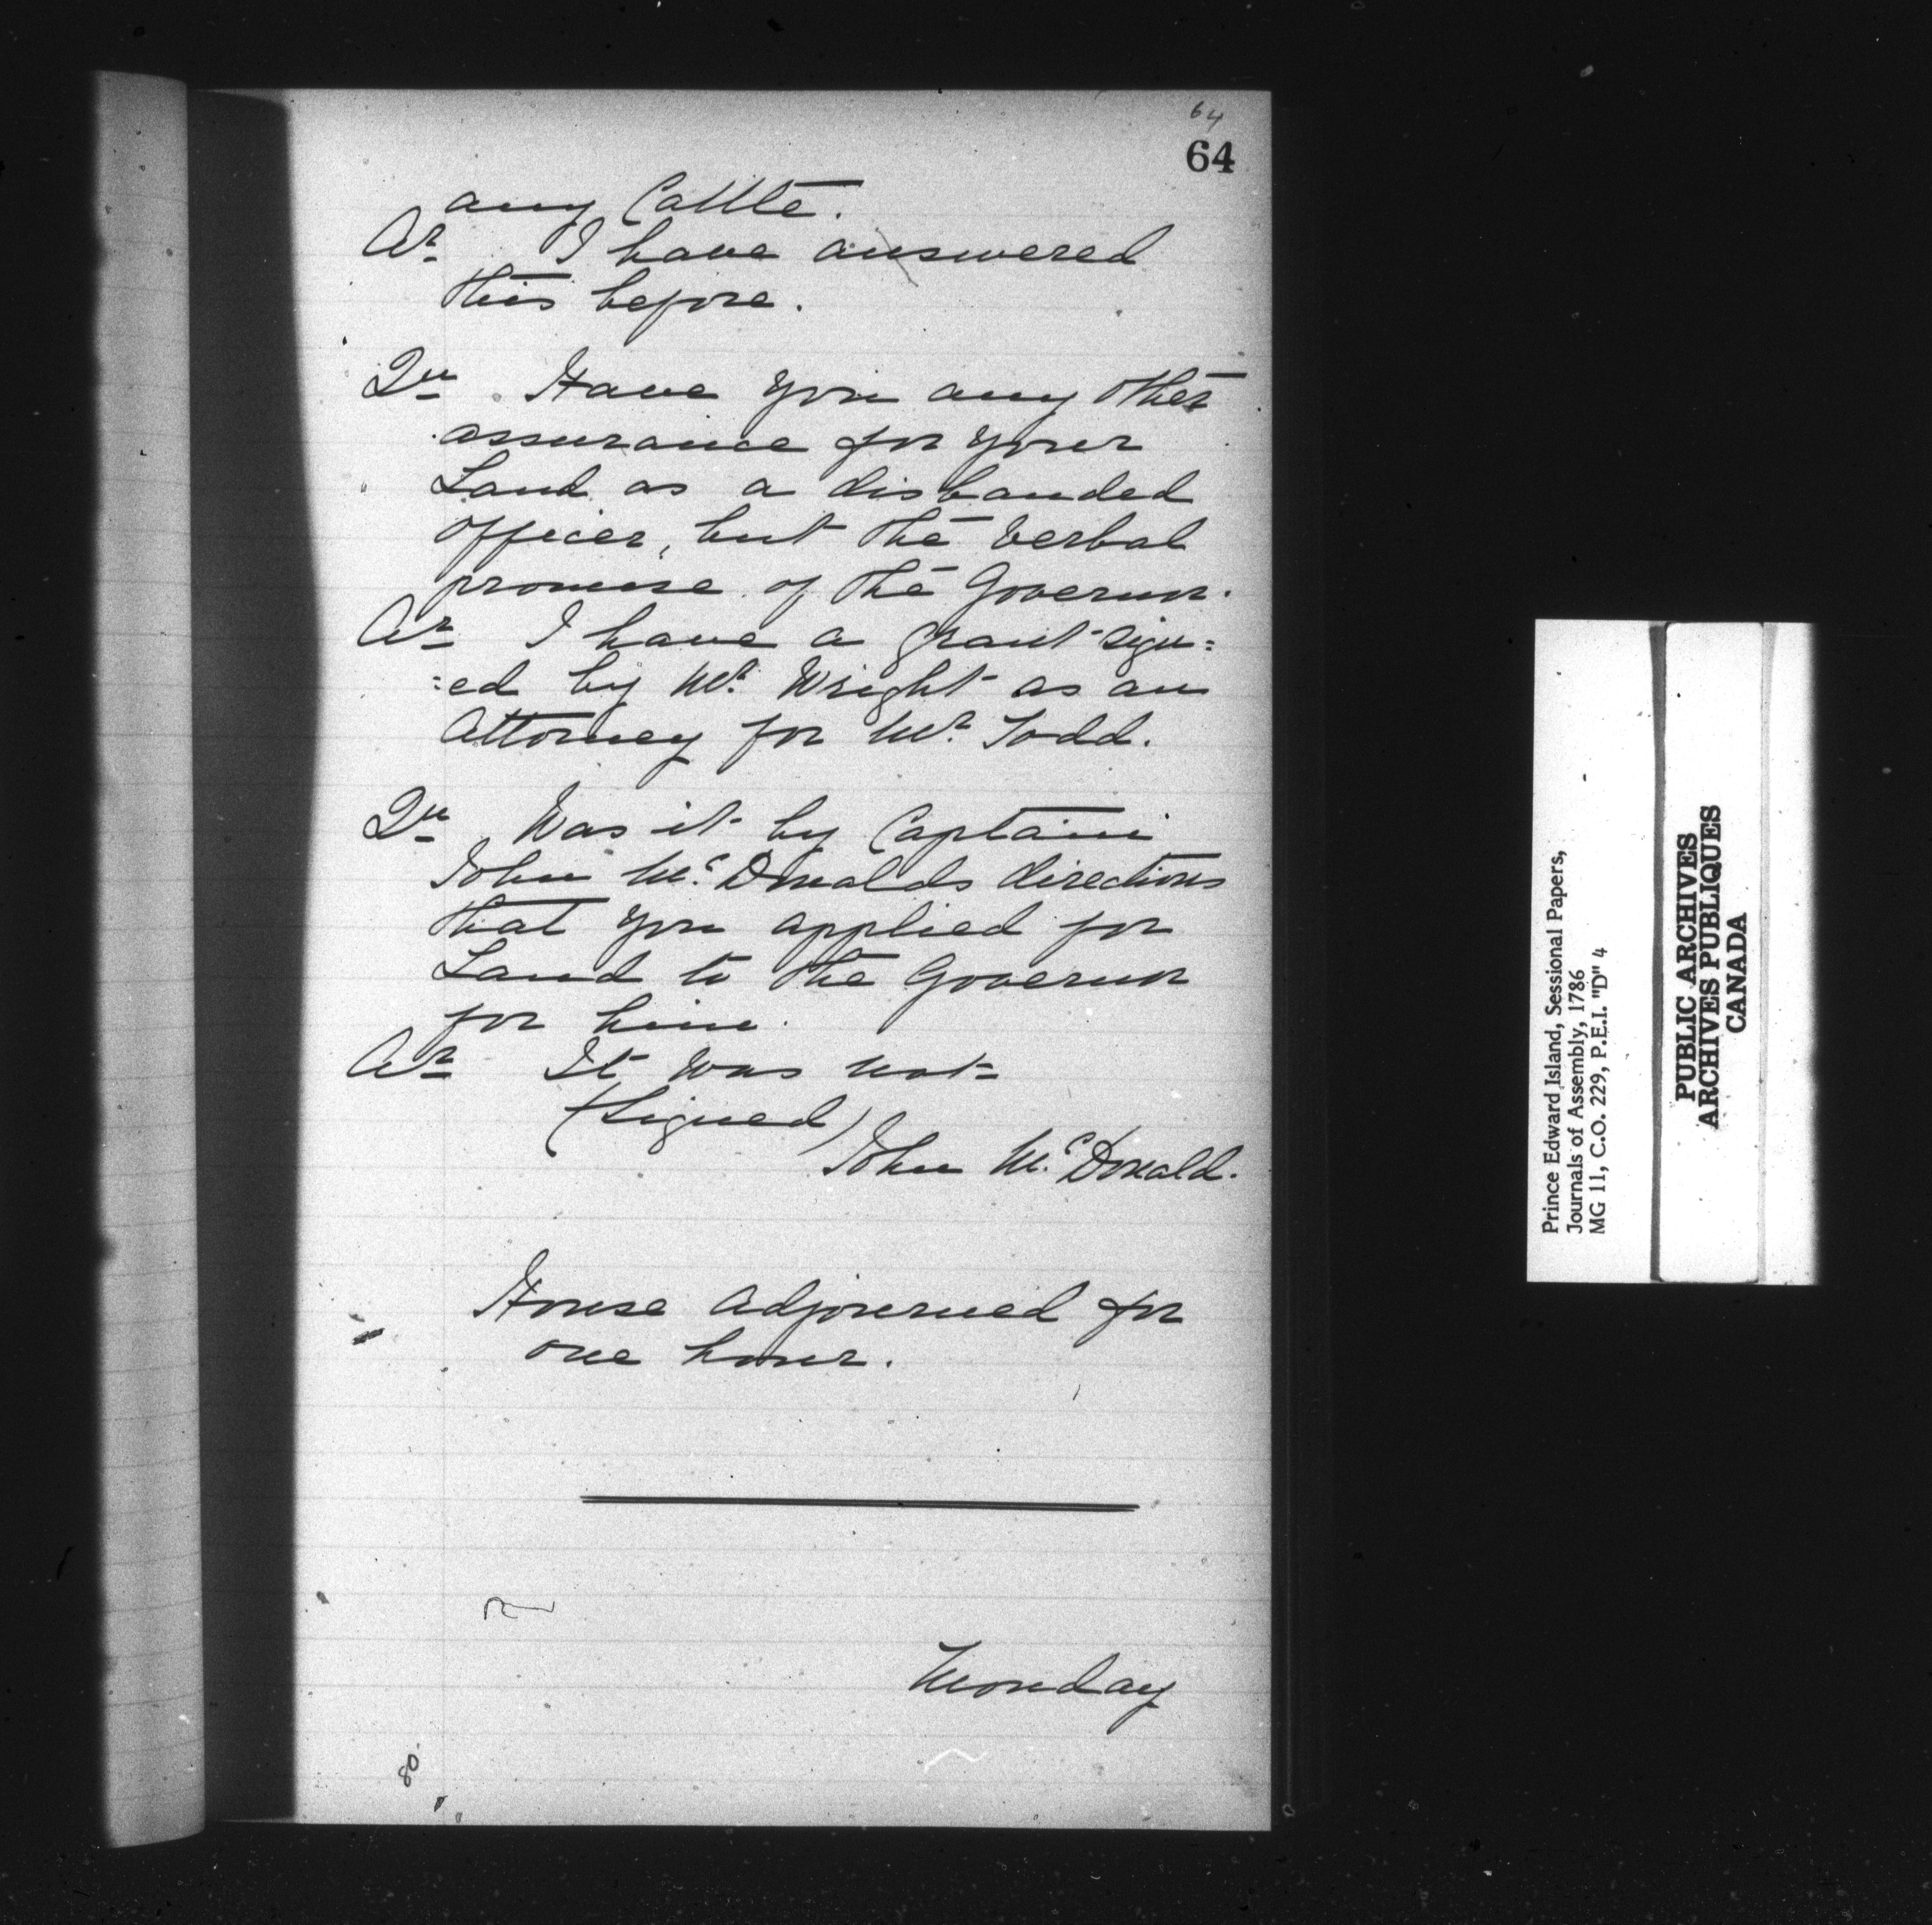 64
64
any Cattle.
Ar I have answered
this before.
Qu Have you any other
assurance for your
Land as a disbanded
officer, but the verbal
promise of the Governor.
Ar I have a grant sign=
=ed by Mr. Wright as an
Attorney for Mr. Todd.
Qu Was it by Captain
John Mc.Donalds directions
that you applied for
Land to the Governor
for him.
Ar It was not=
(Signed)
John Mc.Donald.
House Adjourned for
one hour.
Monday
80
Prince Edward Island, Sessional Papers,
Journals of Assembly, 1786
MG 11, C.O. 229, P.E.I. "D" 4
PUBLIC ARCHIVES
ARCHIVES PUBLIQUES
CANADA